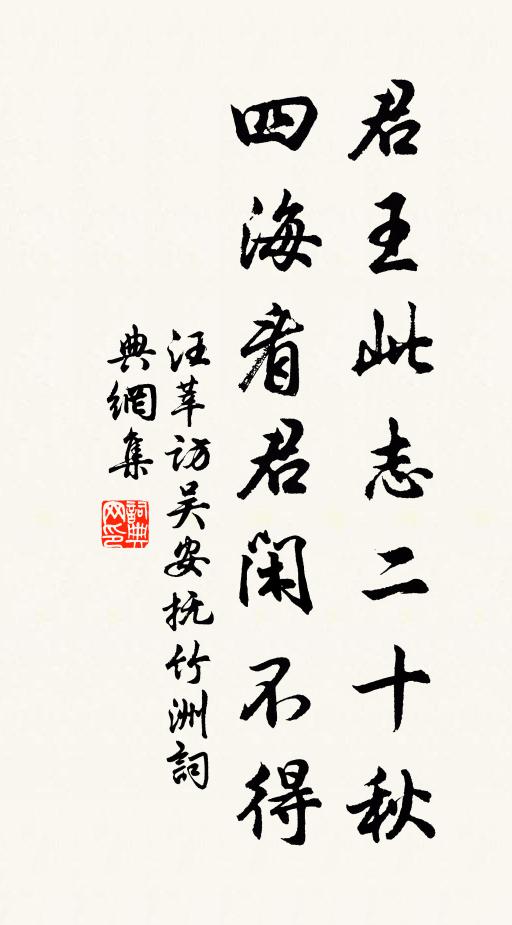 君王此志二十秋
四海看君閑不得
汪莘訪吴安抚竹洲詞
典網集
詞典网印